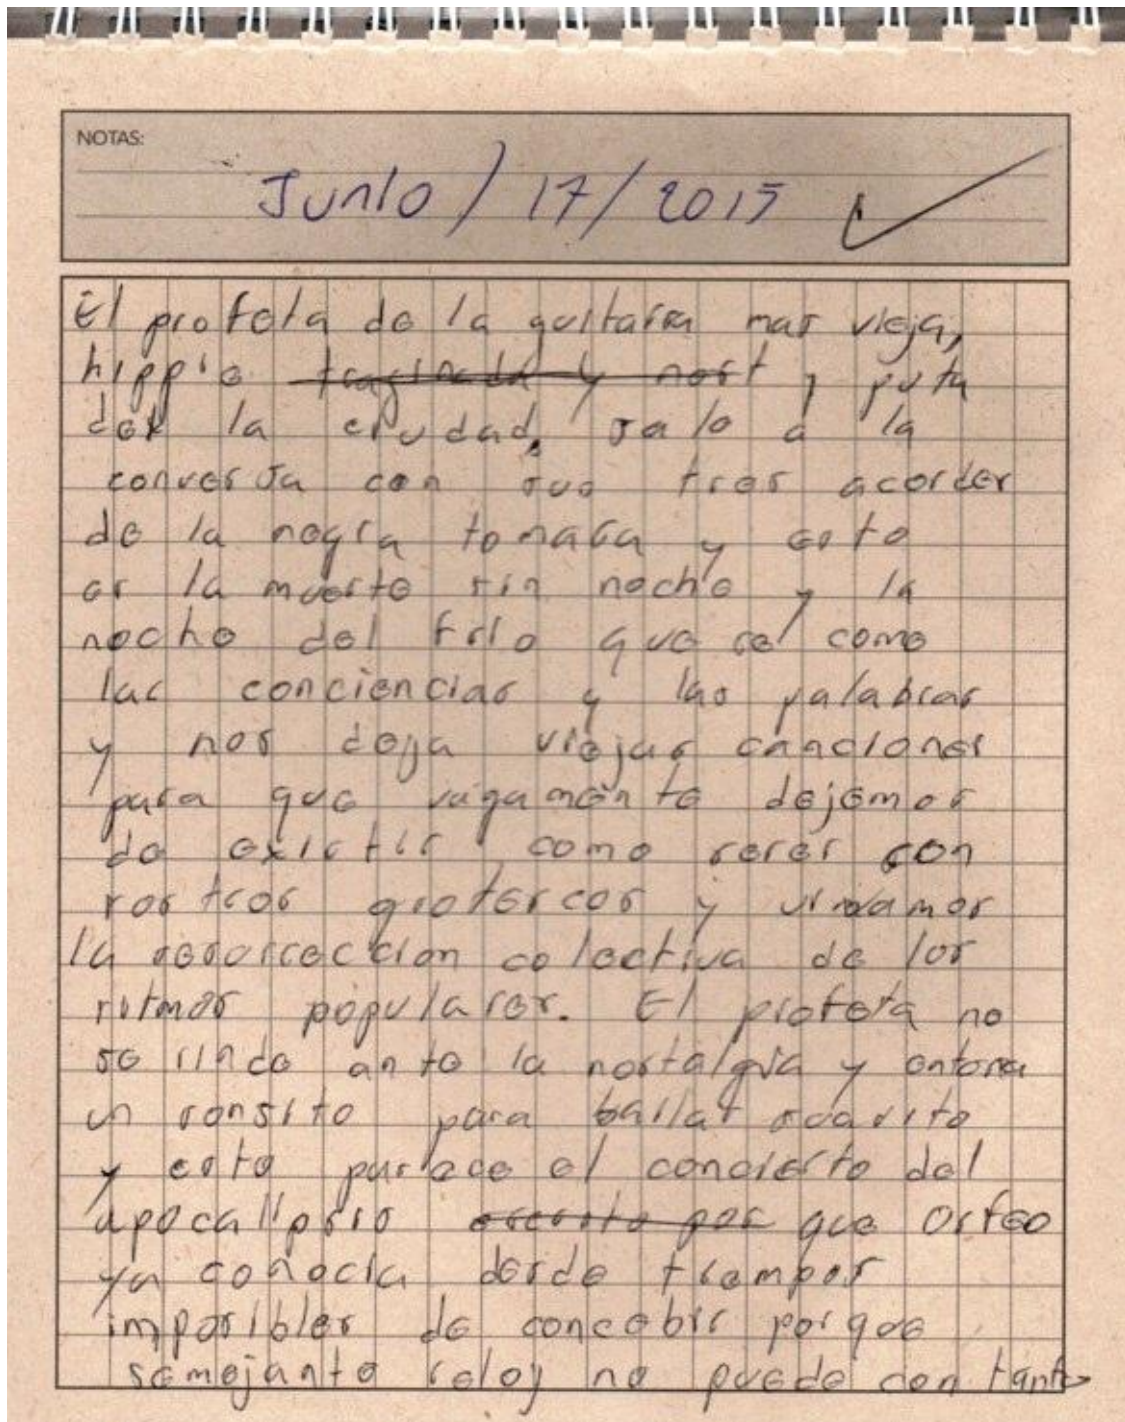 NOTAS:
Junio / 17 / 2015
El profeta de la guitarra mas vieja,
hippie y puta
de la ciudad, sale a la
conversa con sus tres acordes
de la negra tomasa y esto
es la muerte sin noche y la
noche del frio que se come
las conciencias y las palabras
y nos deja viejas canciones
para que vagamente dejemos
de existir como seres con
rostros grotescos y vivamos
la resurreccion colectiva de los
ritmos populares. El profeta no
se rinde ante la nostalgia y entona
un sonsito para bailar suavito
y esto parece el concierto del
apocalipsis que Orfeo
ya conocia desde tiempos
imposibles de concebir porque
semejante reloj no puede con tanto